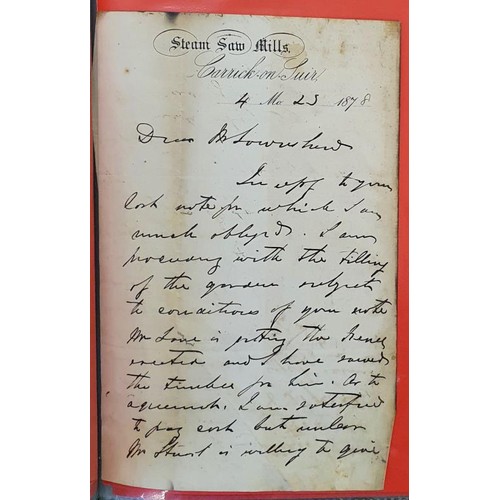 Steam Saw Mills,
Carrick-on-Suir,
4 Mo 23 1878
Dear Mr Townshend
In reply to your
last note for which I am
much obliged. I am
proceeding with the tilling
of the garden subject
to conditions of your note
Mr is getting the
erected and I have sawed
the timber for him. As to
agreement. I am satisfied
to pay cost but unless
Mr is willing to give